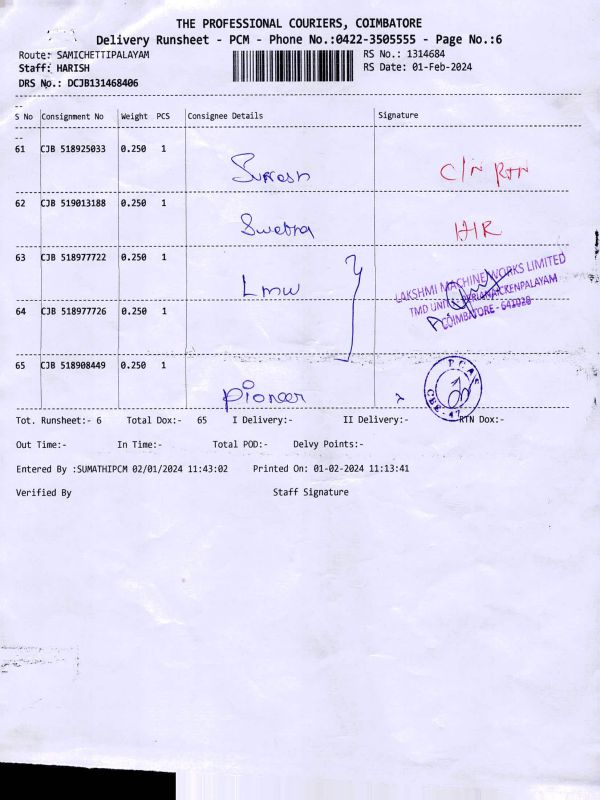 THE PROFESSIONAL COURIERS, COIMBATORE
Delivery Runsheet - PCM - Phone No.:0422-3505555 - Page No.:6
Route: SAMICHETTIPALAYAM RS No.: 1314684
Staff: HARISH RS Date: 01-Feb-2024
DRS No.: DCJB131468406
S No Consignment No Weight PCS Consignee Details Signature
61 CJB 518925033 0.250 1
Suresh C/N RTN
62 CJB 519013188 0.250 1
Swetha HR
63 CJB 518977722 0.250 1
Lmw LAKSHMI MACHINE WORKS LIMITED
TMD UNIT PERIANAICKENPALAYAM
64 CJB 518977726 0.250 1
COIMBATORE - 641020
65 CJB 518908449 0.250 1
Pioneer PCAS CBE-47
Tot. Runsheet:- 6 Total Dox:- 65 I Delivery:- II Delivery:- RTN Dox:-
Out Time:- In Time:- Total POD:- Delvy Points:-
Entered By :SUMATHIPCM 02/01/2024 11:43:02 Printed On: 01-02-2024 11:13:41
Verified By Staff Signature